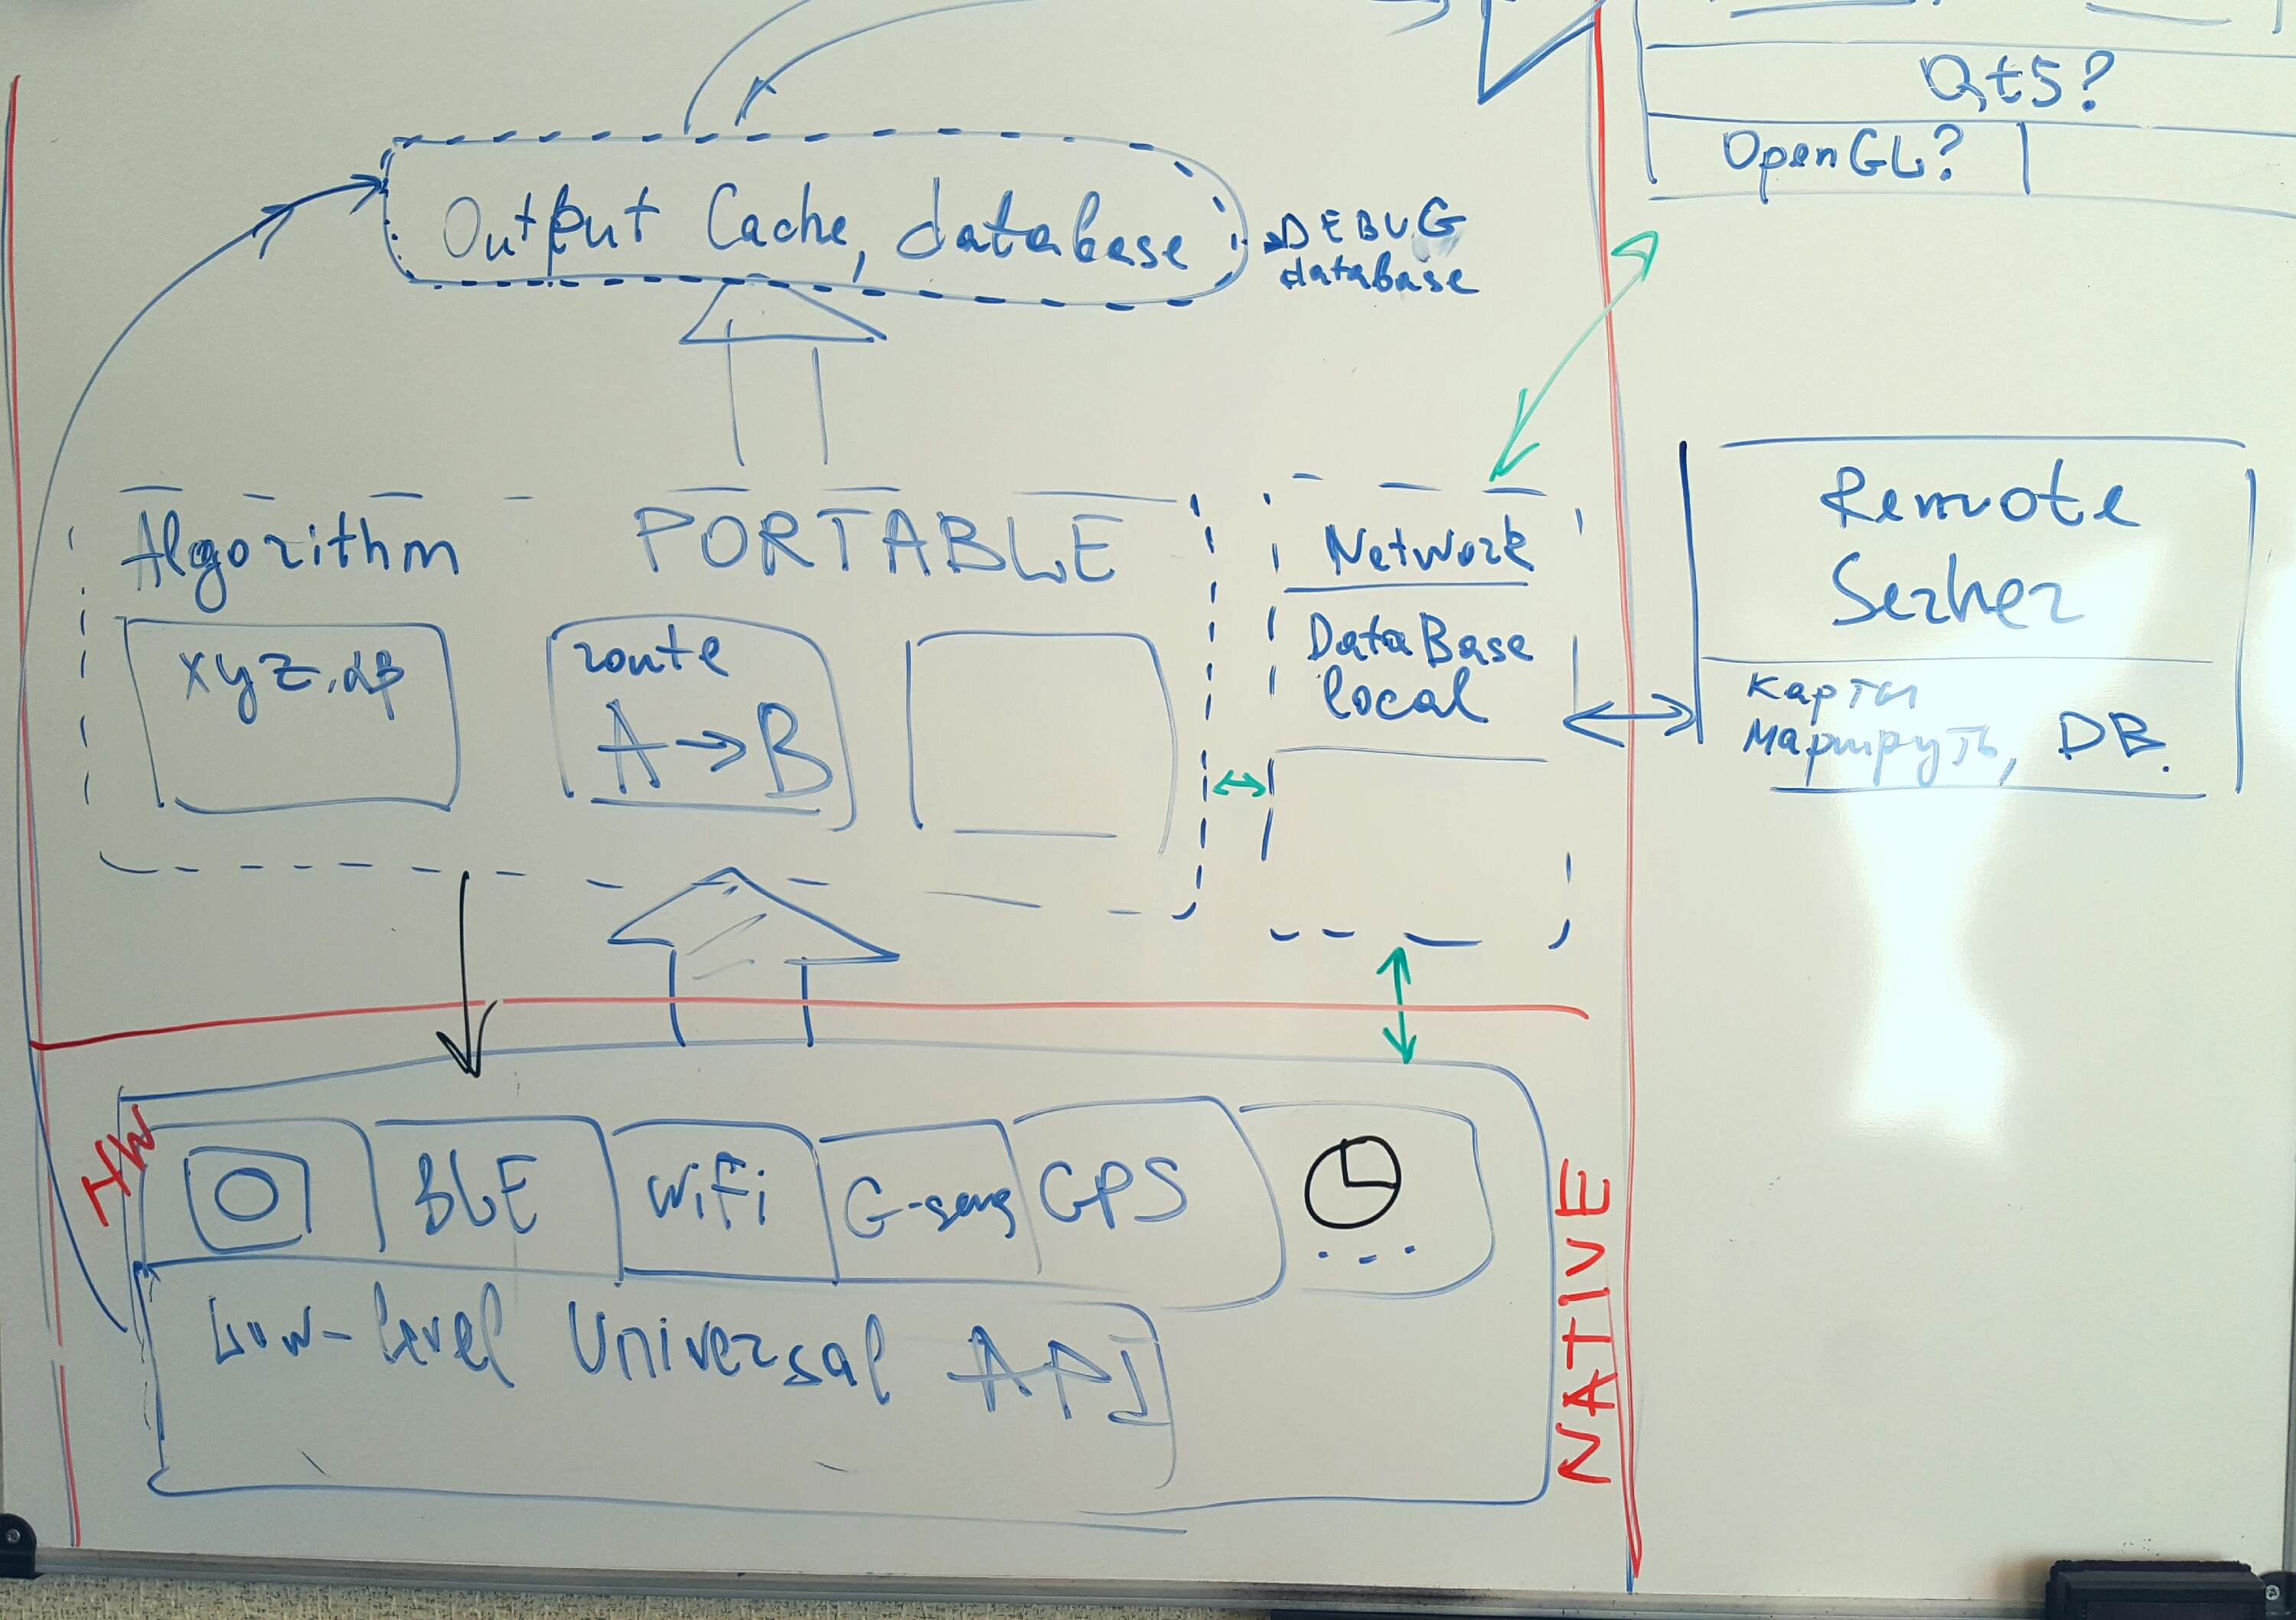 Qt5?
OpenGL?
Output Cache, database
DEBUG
database
Algorithm
PORTABLE
xyz,αβ
route
A→B
Network
DataBase
local
Remote
Server
карты
маршруты, DB.
HW
BLE
WiFi
G-sens
GPS
...
Low-level Universal API
NATIVE